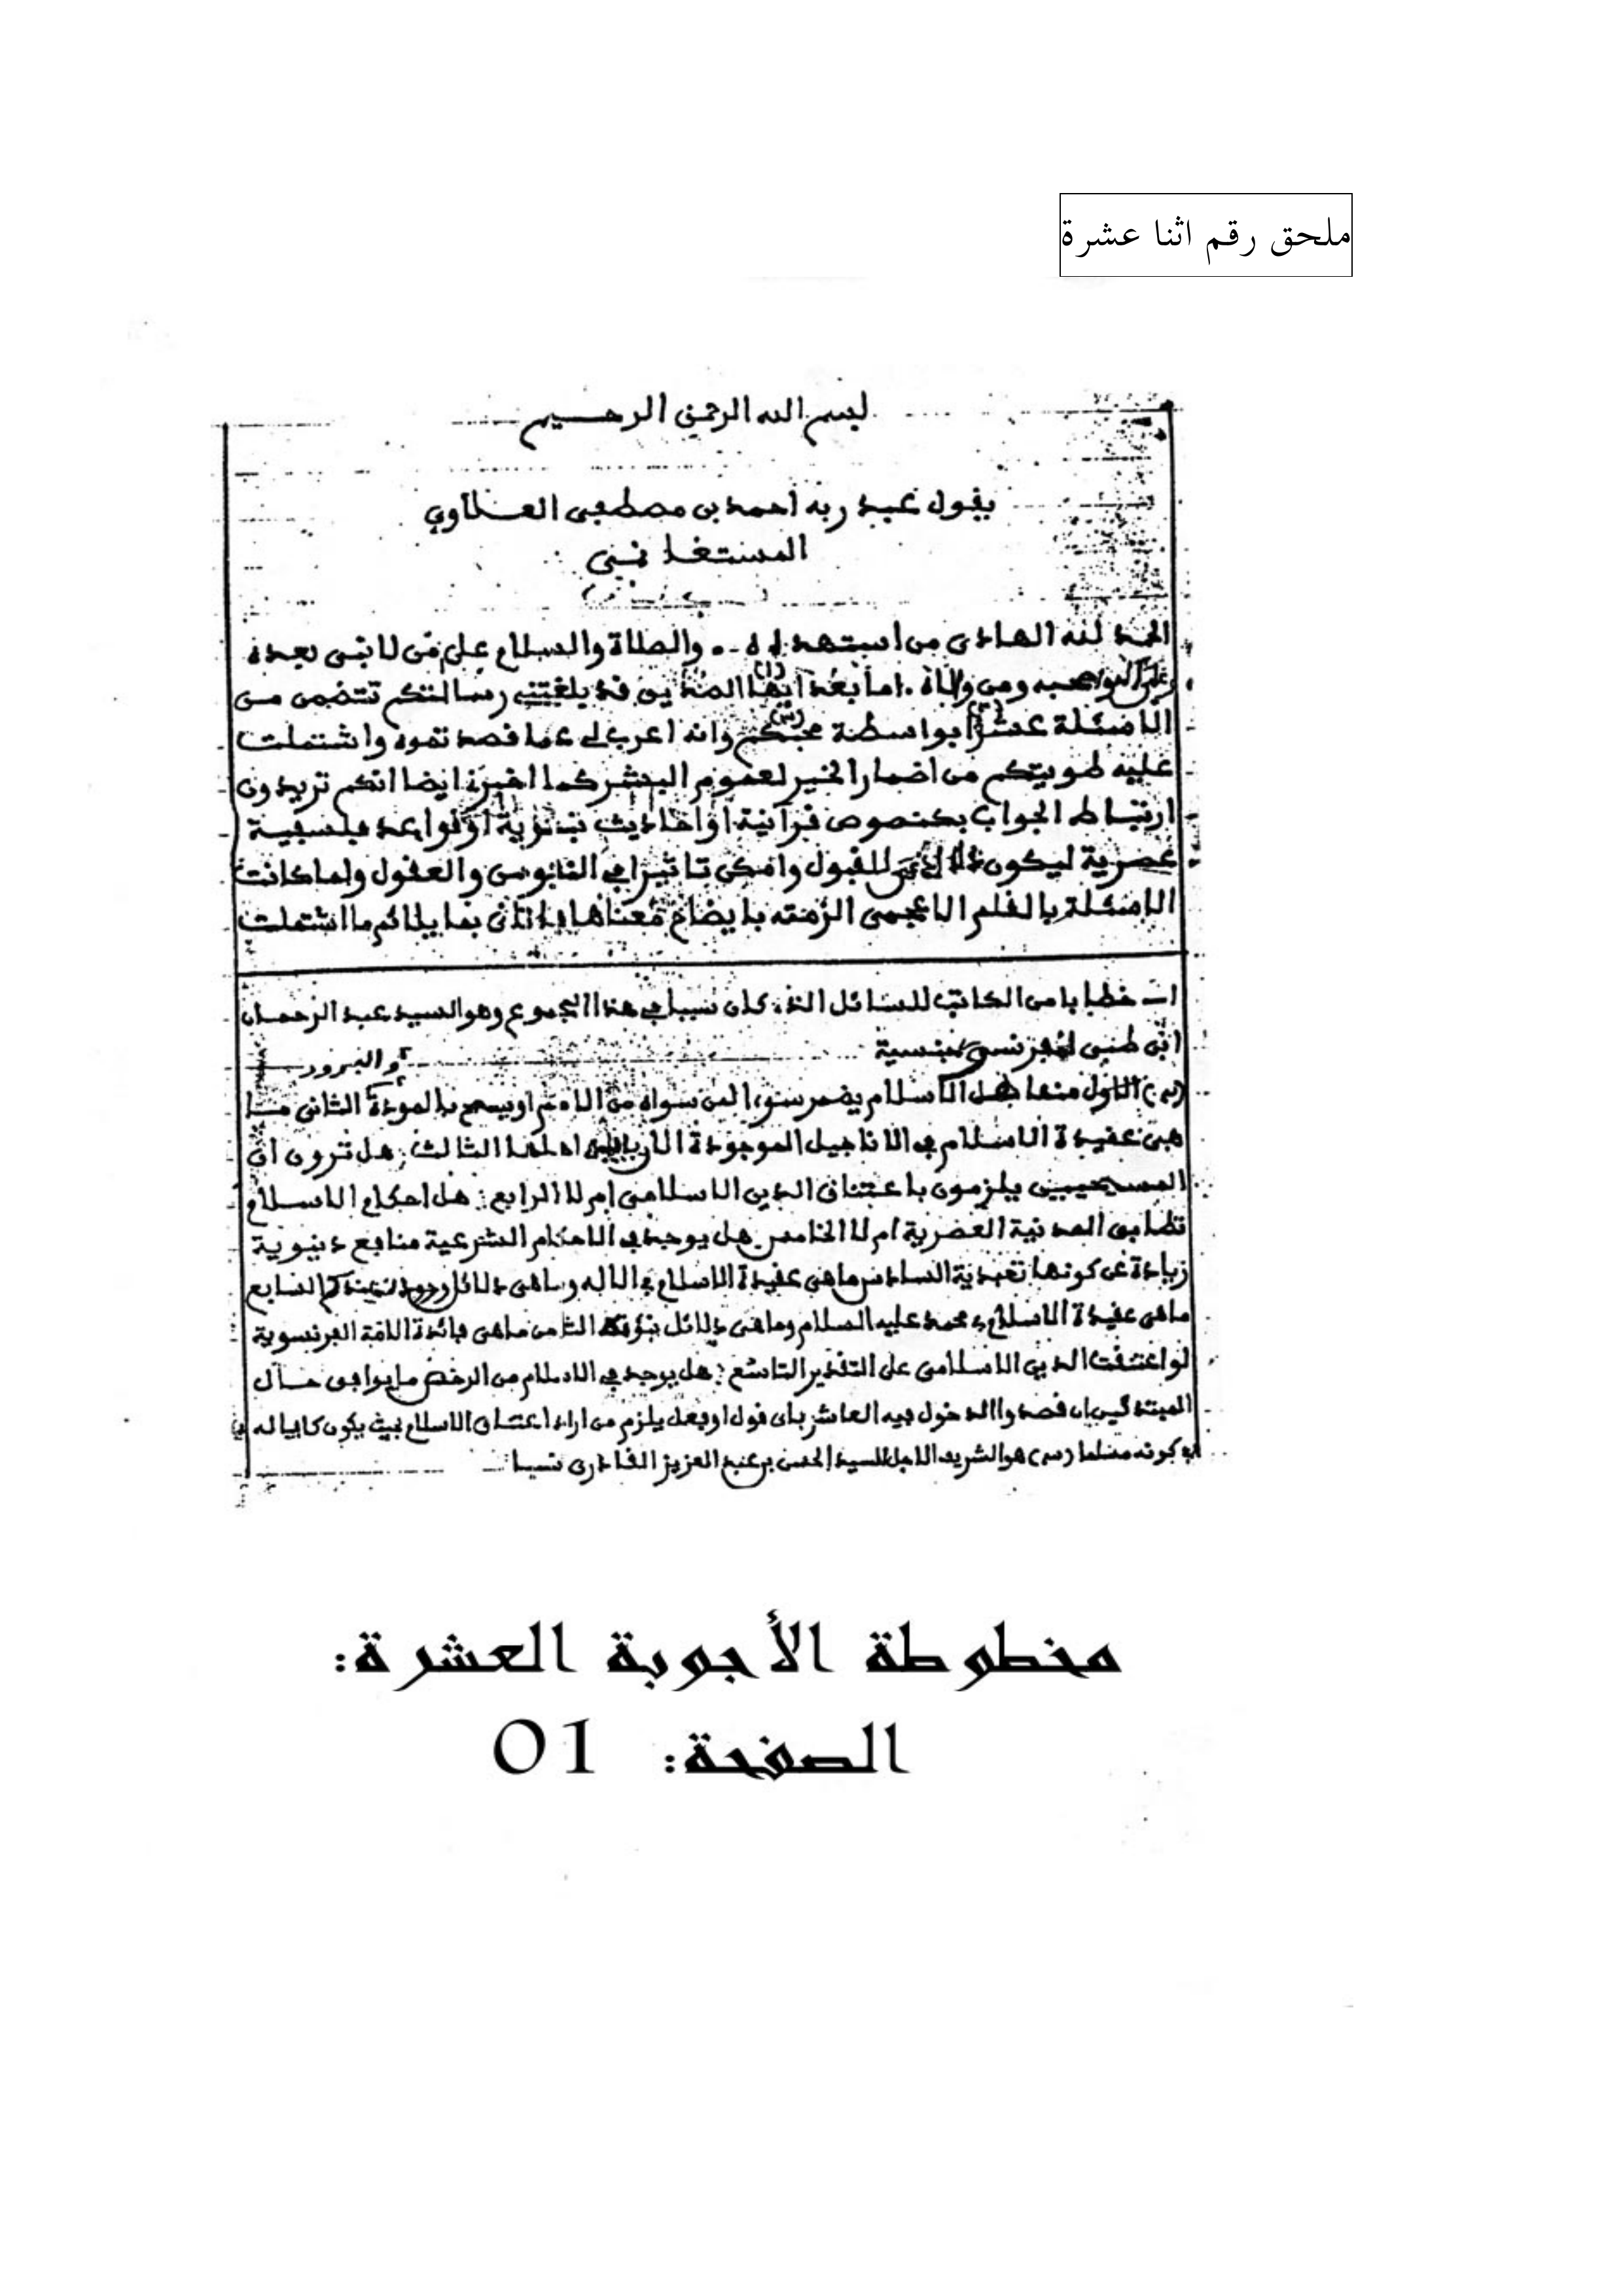 ملحق رقم اثنا عشرة
بسم الله الرحمن الرحيم
يقول عبد ربه احمد بن مصطفى العلاوي
المستغانمي
الحمد لله الهادي من استهداه .. والصلاة والسلام على من لا نبي بعده
وعلى آله وصحبه ومن والاه . اما بعد ايها (١) قد بلغتني رسالتكم تتضمن من
الاسئلة عشرا (٢) بواسطة محبكم (٣) وانه اعرب لي عما قصدتموه واشتملت
عليه طويتكم من اضمار الخير لعموم البشر كما اخبرنا ايضا انكم تريدون
ارتباط الجواب بنصوص قرآنية او احاديث نبوية او قواعد فلسفية
عصرية ليكون للقبول وامكن تاثيرا في النفوس والعقول ولما كانت
الاسئلة بالقلم الاعجمي الزمته بايضاح معناها بما يلائم ما اشتملت
ا خطابا من الكاتب للسائل الذي كان سببا في هذا المجموع وهو السيد عبد الرحمان
ابن جنسية
(٢) الاول منها هل الاسلام يضمر سوءا لمن سواه من الامم او يسمح بالمودة الثاني ما
هي عقيدة الاسلام في الاناجيل الموجودة الان اهلها الثالث: هل ترون ان
المسيحيين يلزمون باعتناق الدين الاسلامي ام لا الرابع: هل احكام الاسلام
تطابق المدنية العصرية ام لا الخامس هل يوجد في الاحكام الشرعية منافع دنيوية
زيادة عن كونها تعبدية السادس ما هي عقيدة الاسلام في الاله وما هي دلائل وجوده عندكم السابع
ما هي عقيدة الاسلام في محمد عليه السلام وما هي دلائل نبوته الثامن ما هي فائدة الامة الفرنسوية
لو اعتنقت الدين الاسلامي على التقدير التاسع: هل يوجد في الاسلام من الرخص ما يوافق حال
المبتدئين ان قصدوا الدخول فيه العاشر باي قول او فعل يلزم من اراد اعتناق الاسلام بحيث يكون كافيا له
في كونه مسلما (٣) هو الشريف الاجل السيد الحسن بن عبد العزيز القادري نسبا
مخطوطة الأجوبة العشرة:
الصفحة: 01